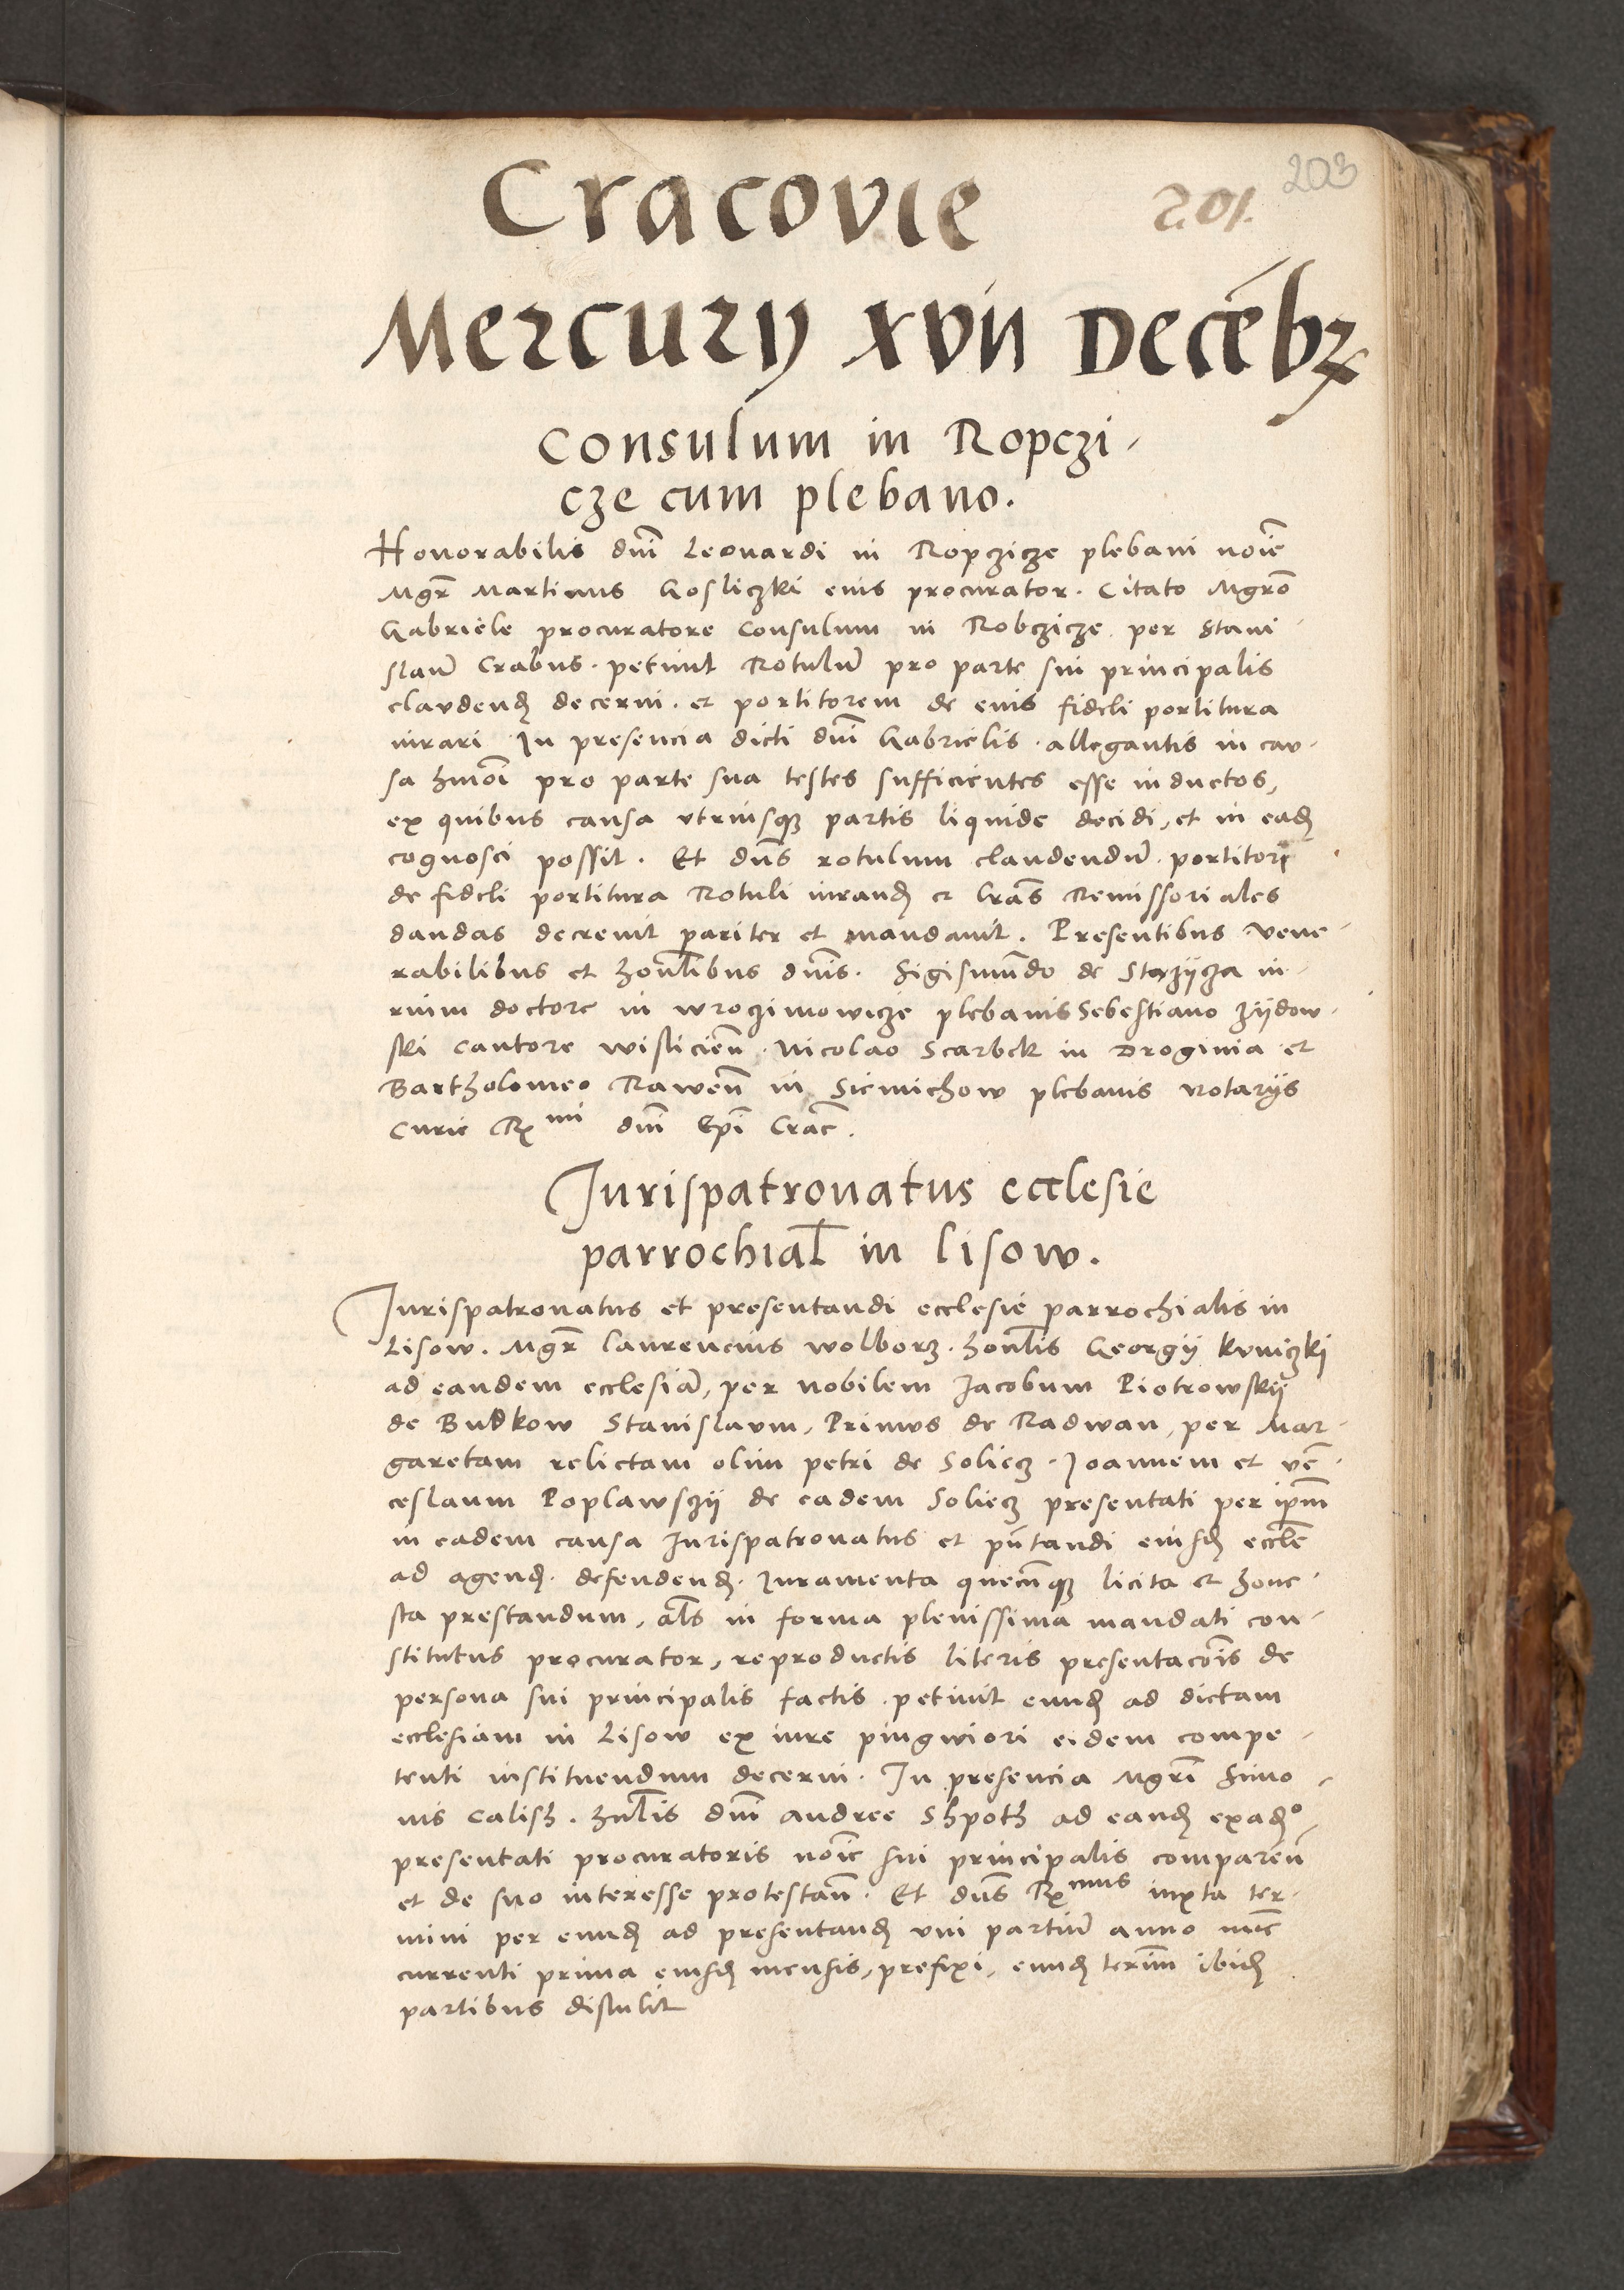 203
201.
Cracovie
Mercurÿ xvii Decēbꝝ
Consulum in Ropczi-
cze cum plebano.
Honorabilis dnī Leonardi in Ropczicze plebani noīe
Mgr̄ Martinus Gosliczki eius procurator. Citato Mgrō
Gabriele procuratore Consulum in Robczicze per Stani-
slaum̄ Crabus. petiuit Rotulum̄ pro parte sui principalis
claudenḍ decerni. et portitorem de eius fideli portitura
iurari In presencia dicti dnī Gabrielis. allegantis in cau-
sa hmōi pro parte sua testes sufficientes esse inductos,
ex quibus causa vtriusqꝫ partis liquide decidi, et in eadḍ
cognosci possit. Et dns̄ rotulum claudendum̄. portitori
de fideli portitura Rotuli iuranḍ et lrās Remissoriales
dandas decreuit pariter et mandauit. Presentibus Vene-
rabilibus et honl̄ibus dnīs. Sigismundo de Stazÿcza iu-
rium doctore in wrozimowicze plebanis Sebestiano Zÿdow-
ski Cantore wislicień. Nicolao Scarbek in Droginia et
Bartholomeo Raweń in Siemichow plebanis notarÿs
Curie Rmi dnī Epī Crac̄.
Jurispatronatus ecclesie
parrochial̄ in lisow.
Jurispatronatus et presentandi ecclesie parrochialis in
Lisow. Mgr̄ Laurencius wolborz. honl̄is Georgÿ Kuniczki
ad eandem ecclesiā, per nobilem Jacobum Piotrowskÿ
de Budkow Stanislaum, Primus de Radwan, per Mar-
garetam relictam olim petri de Soliecz. Joannem et vē-
ceslaum Poplawszÿ de eadem Soliecz presentati per ipm̄
in eadem causa Jurispatronatus et pn̄tandi eiusḍ eccl̄e
ad agenḍ. defendenḍ. Juramenta quecūqꝫ licita et hone-
sta prestandum, al̄s in forma plenissima mandati con-
stitutus procurator, reproductis literis presentacōis de
persona sui principalis factis. petiuit eunḍ ad dictam
ecclesiam in Lisow ex iure pingwiori eidem compe-
tenti instituendum decerni. In presencia Mgrī Simo-
nis Calish. hnl̄is dnī Andree Shpoth ad eanḍ exaḍo
presentati procuratoris noīe sui principalis comparen̄
et de suo interesse protestan̄. Et dns̄ Rmus iuxta ter-
mini per eunḍ ad presentanḍ vni partium̄ anno nūc
currenti prima eiusḍ mensis, prefixi, eunḍ termī ibiḍ
partibus distulit